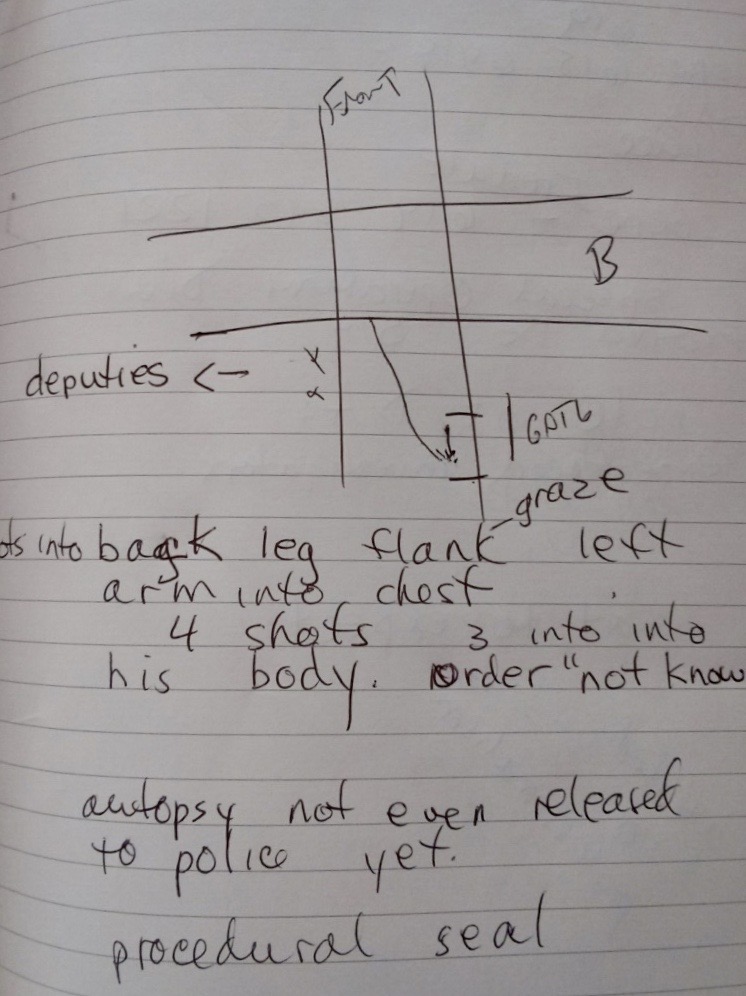 Front
B
deputies <-
x
x
GATE
graze
ots into back leg flank left
arm into chest
4 shots 3 into into
his body. order "not know
autopsy not even released
to police yet.
procedural seal